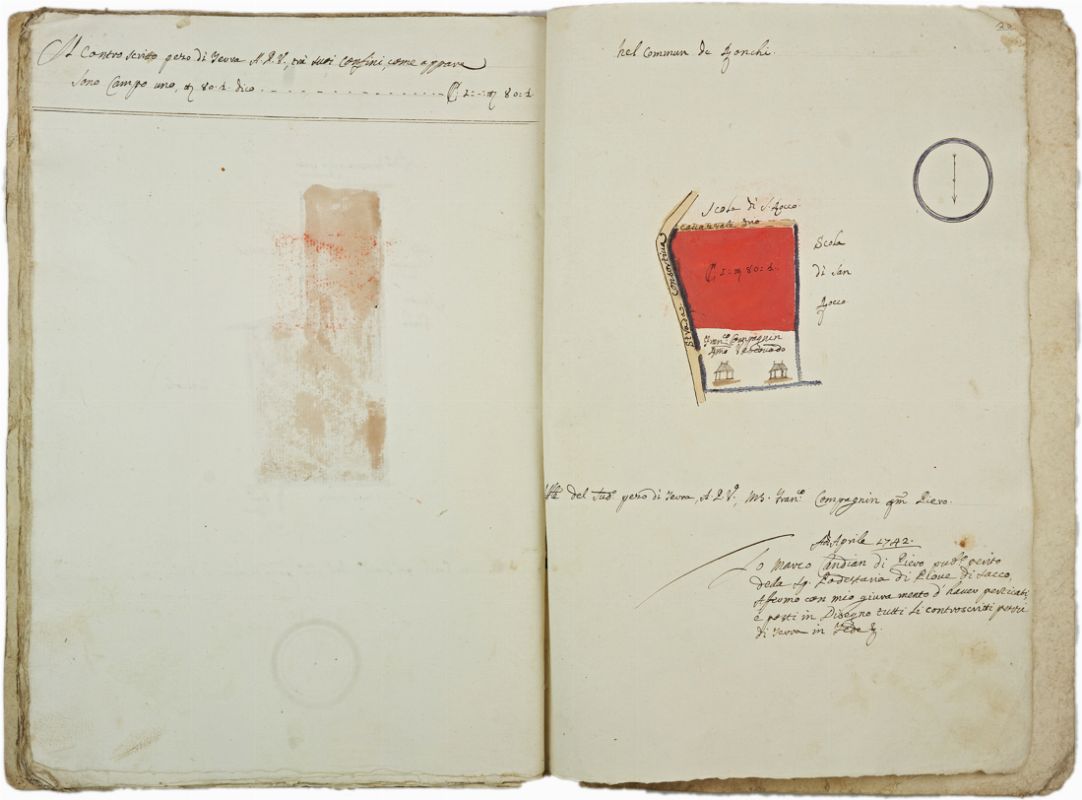 Il Controscrito pezo di Terra A. P. V. trà suoi Confini, come appare
sono Campo uno, 80: dico
nel Commun de Ronchi.
Scola di S. Rocco
Consortivo
Scola
di San
Rocco
80:
Stradela Consortiva
Fran.co Compagnin
del sud.o pezo di Terra, A. P. V., M.s Fran.co Compagnin qm Piero.
Aprile 1742.
Io Marco Candian di Piero pub.o perito
dela Sp. Podestaria di Piove di Sacco,
Affermo con mio giuramento d'haver perticati,
e posti in Disegno tutti li controscriti pezzi
di Terra in Fede